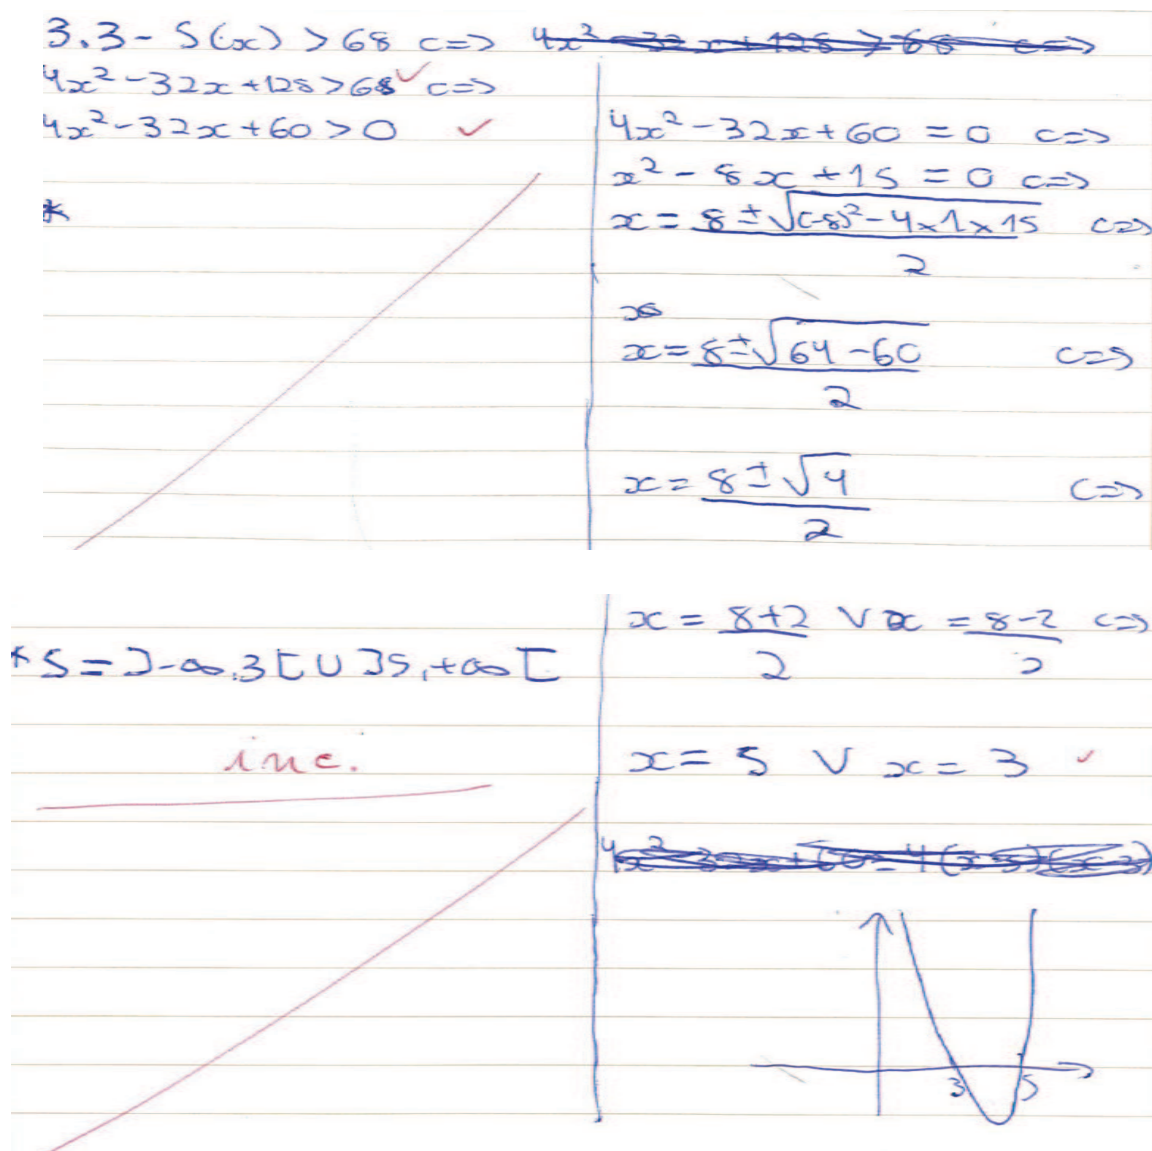 3.3- S(x) > 68 <=> 4x² - 32x + 128 > 68 <=>
4x² - 32x + 128 > 68 ✓ <=>
4x² - 32x + 60 > 0 ✓
*
4x² - 32x + 60 = 0 <=>
x² - 8x + 15 = 0 <=>
x = 8 ± √(-8)² - 4 x 1 x 15 <=>
2
x = 8 ± √64 - 60 <=>
2
x = 8 ± √4 <=>
2
* S = ]-∞, 3[ U ]5, +∞[
inc.
x = 8+2 V x = 8-2 <=>
2 2
x = 5 V x = 3 ✓
4x² - 32x + 60 = 4(x-5)(x-3)
3 5